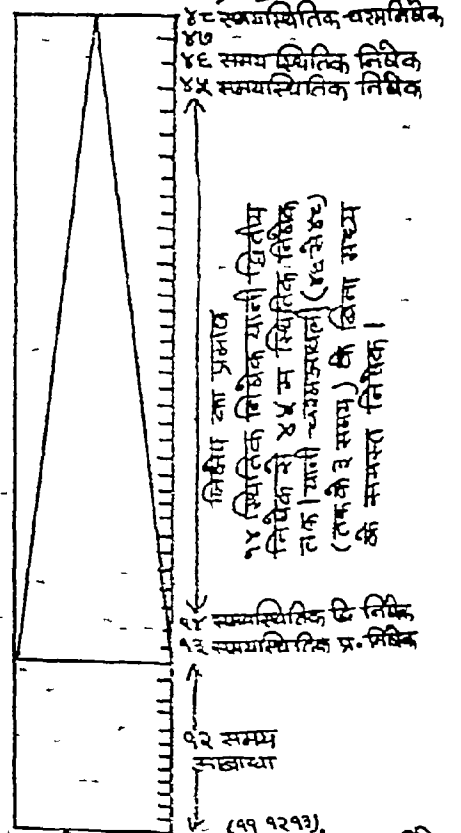 ४८ समयस्थितिक चरमनिषेक
४७
४६ समय स्थितिक निषेक
४५ समयस्थितिक निषेक
निक्षेप का प्रमाण
१४ स्थितिक निषेक यानी द्वितीय
निषेक से ४५ स स्थितिक निषेक
तक। यानी चरमआवली (४६ से ४८
तक के ३ समय) के बिना मध्य
के समस्त निषेक।
१४ समयस्थितिक द्वि निषेक
१३ समयस्थितिक प्र. निषेक
१२ समय
आबाधा
(११ १२१३).